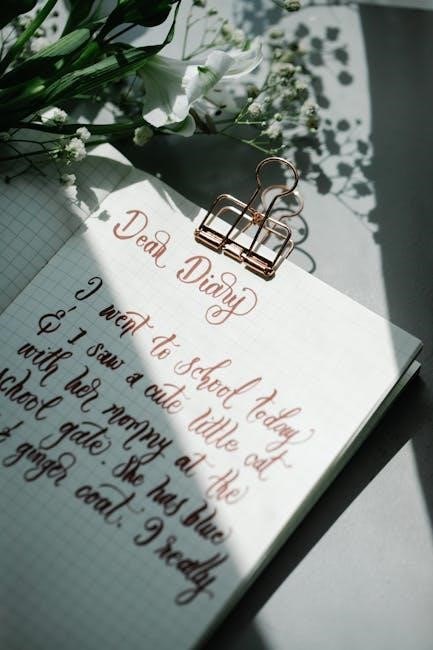 Dear Diary
I went to school today
& I saw a cute little cat
with her mommy at the
school gate. She has blue
& ginger coat. I really